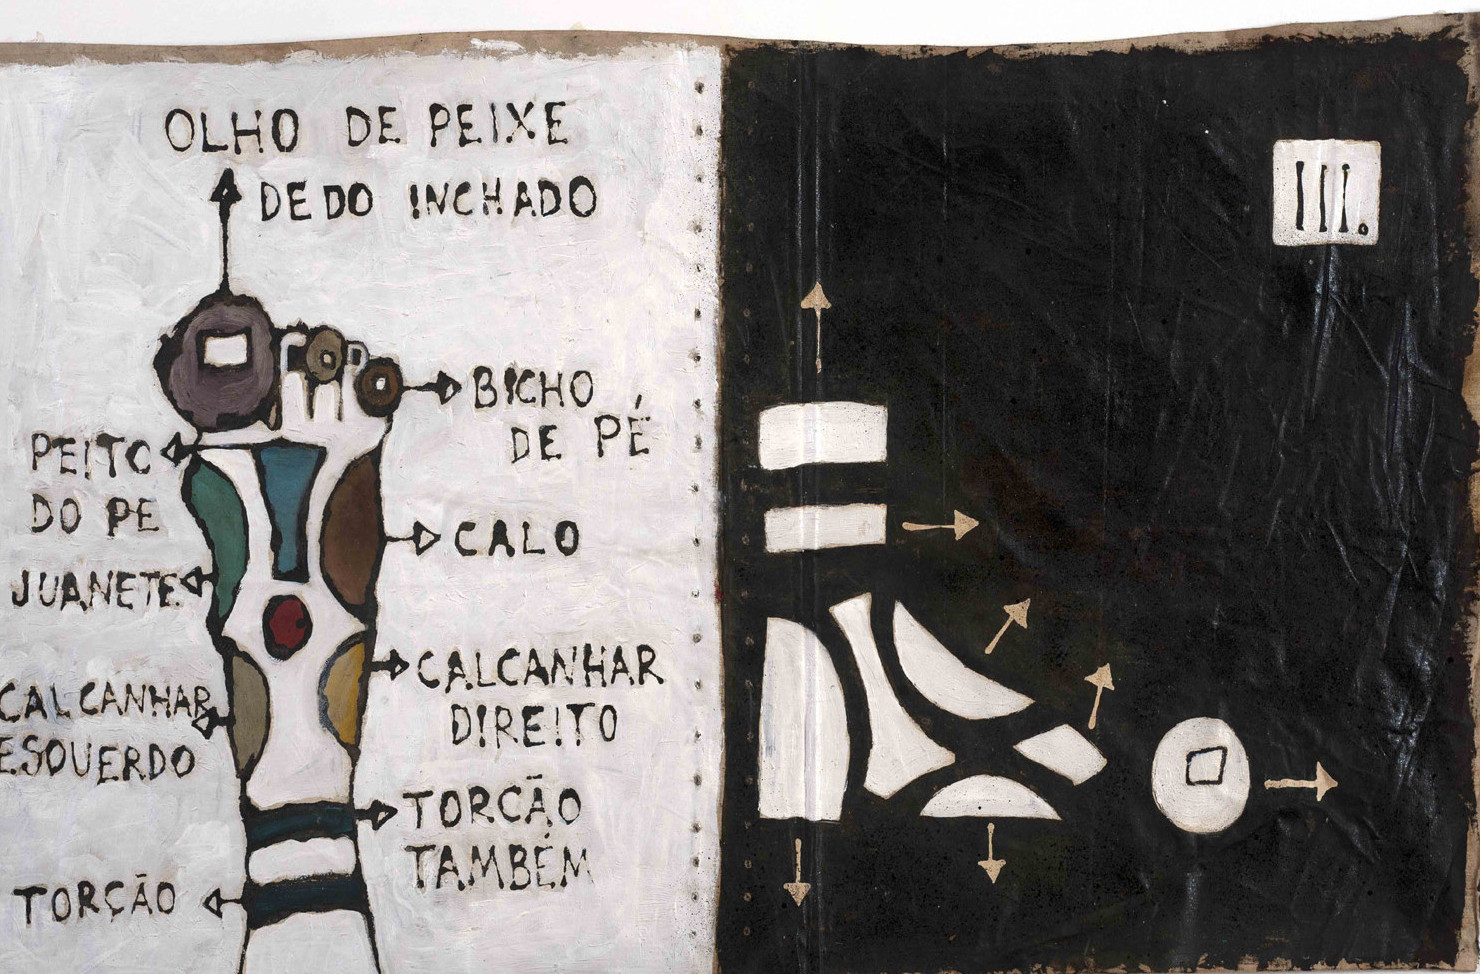 OLHO DE PEIXE
DEDO INCHADO
BICHO
DE PÉ
PEITO
DO PE
CALO
JUANETE
CALCANHAR
DIREITO
CALCANHAR
ESQUERDO
TORCÃO
TAMBÉM
TORÇÃO
III.